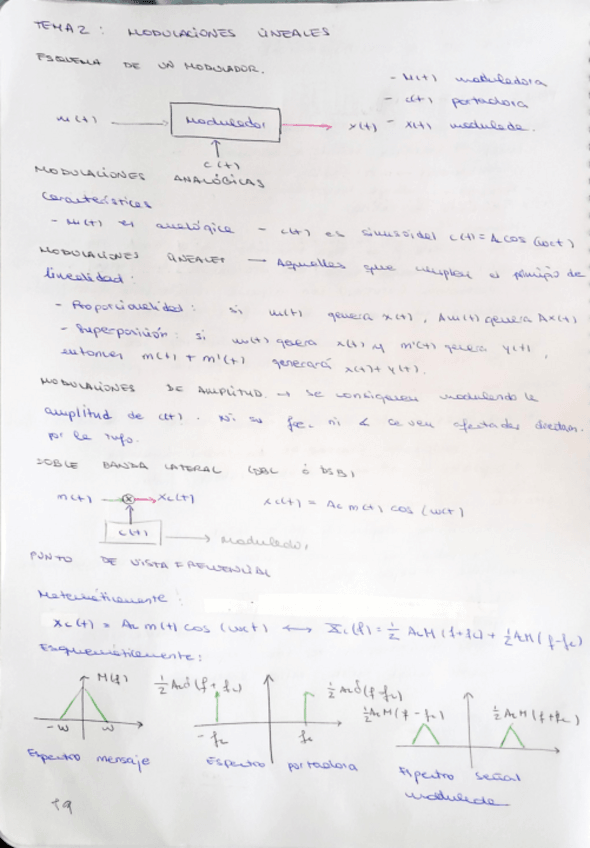 TEMA 2: MODULACIONES LINEALES
ESQUEMA DE UN MODULADOR.
- M(t) moduladora
- c(t) portadora
- x(t) modulada.
m(t) Modulador x(t)
c(t)
MODULACIONES ANALÓGICAS
Características
- m(t) es analógica - c(t) es sinusoidal c(t) = Ac cos (wct)
MODULACIONES LINEALES → Aquellas que cumplen el principio de
linealidad:
- Proporcionalidad: si m(t) genera x(t), Am(t) genera Ax(t)
- Superposición: si m(t) genera x(t) y m'(t) genera y(t),
entonces m(t) + m'(t) generará x(t) + y(t).
MODULACIONES DE AMPLITUD → se consiguen modulando la
amplitud de c(t). Ni su fc, ni se ven afectadas
por la info.
DOBLE BANDA LATERAL (DBL ó DSB)
m(t) × xc(t) xc(t) = Ac m(t) cos (wct)
c(t) → Modulador
PUNTO DE VISTA FRECUENCIAL
Matemáticamente:
xc(t) = Ac m(t) cos (wct) ↔ Xc(f) = 1/2 AcM (f+fc) + 1/2 AcM (f-fc)
Esquemáticamente:
M(f) 1/2 Acδ(f + fc) 1/2 Acδ(f-fc)
1/2 AcM(f-fc) 1/2 AcM(f+fc)
-w w -fc fc
Espectro mensaje Espectro portadora Espectro señal
modulada